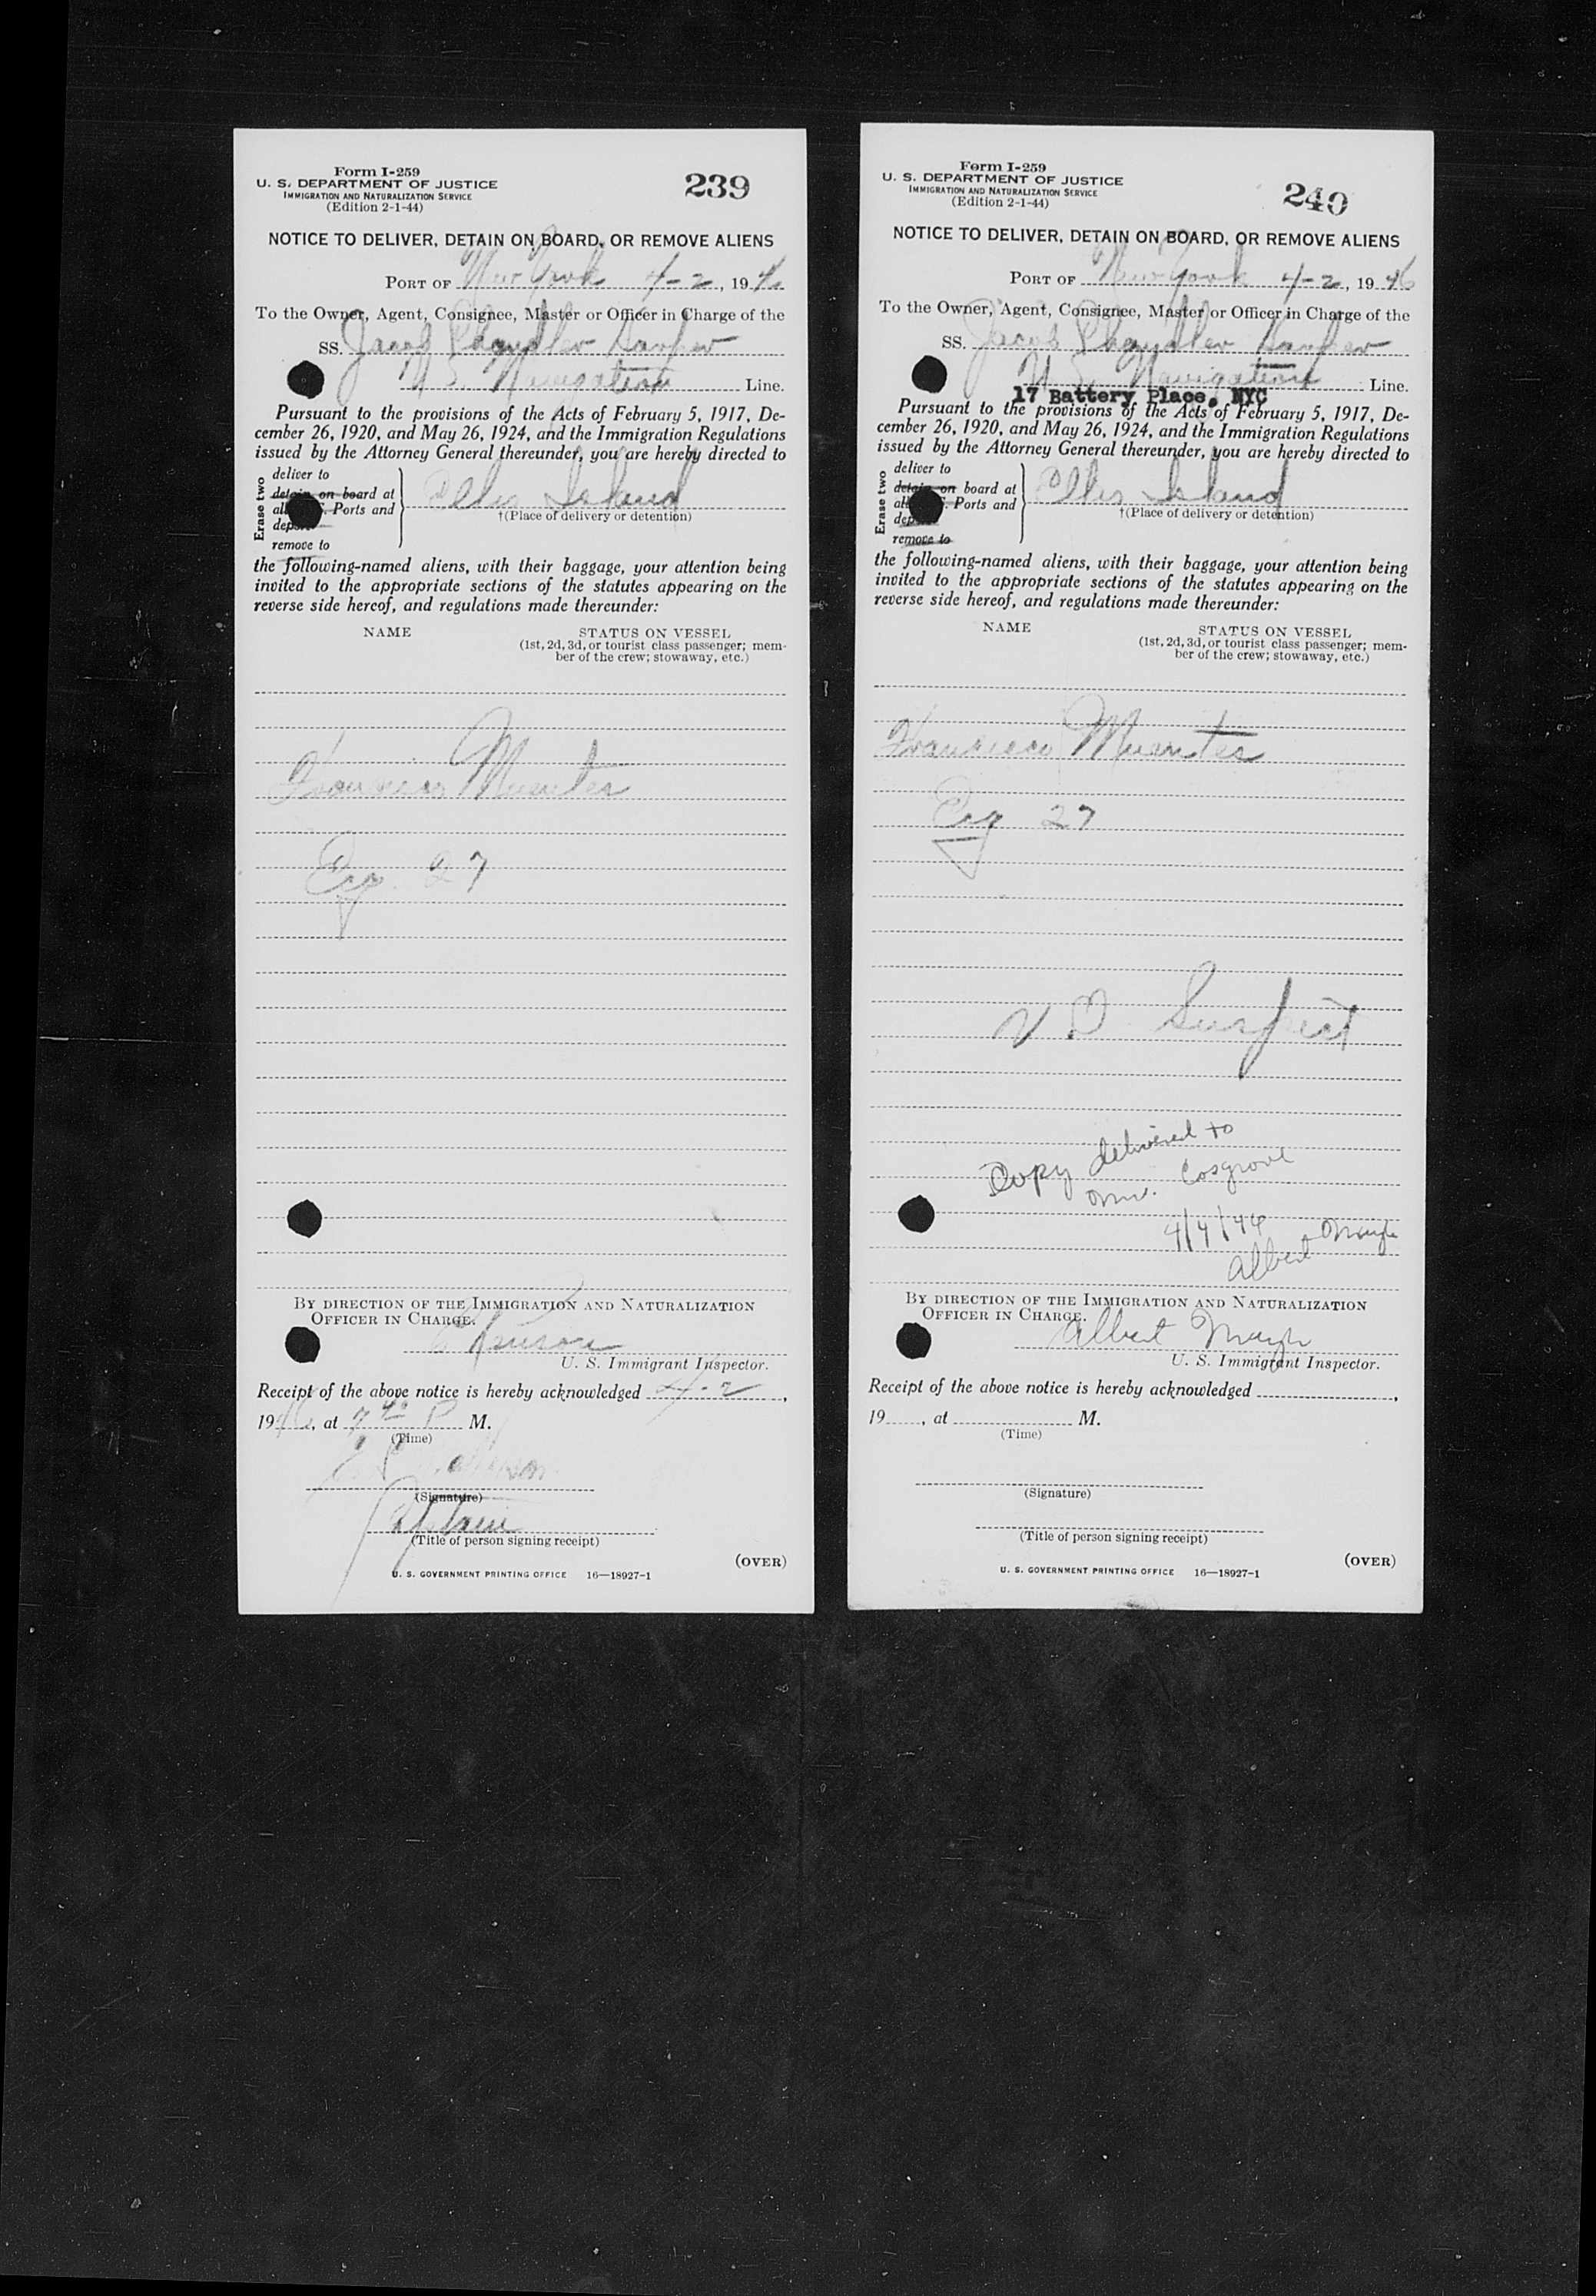 Form I-259
U. S. DEPARTMENT OF JUSTICE
IMMIGRATION AND NATURALIZATION SERVICE
(Edition 2-1-44)
239
NOTICE TO DELIVER, DETAIN ON BOARD, OR REMOVE ALIENS
PORT OF New York 4-2, 19 46
To the Owner, Agent, Consignee, Master or Officer in Charge of the
SS. Jacob Chandler Harper
U S. Navigation Line.
Pursuant to the provisions of the Acts of February 5, 1917, De-
cember 26, 1920, and May 26, 1924, and the Immigration Regulations
issued by the Attorney General thereunder, you are hereby directed to
Erase two
deliver to
detain on board at
Ports and
remove to
Ellis Island
†(Place of delivery or detention)
the following-named aliens, with their baggage, your attention being
invited to the appropriate sections of the statutes appearing on the
reverse side hereof, and regulations made thereunder:
NAME
STATUS ON VESSEL
(1st, 2d, 3d, or tourist class passenger; mem-
ber of the crew; stowaway, etc.)
Francisco Muentes
27
BY DIRECTION OF THE IMMIGRATION AND NATURALIZATION
OFFICER IN CHARGE.
U. S. Immigrant Inspector.
Receipt of the above notice is hereby acknowledged 4-2,
1946, at 7 40 P M.
(Time)
(Signature)
Captain
(Title of person signing receipt)
(OVER)
U. S. GOVERNMENT PRINTING OFFICE 16—18927-1
Form I-259
U. S. DEPARTMENT OF JUSTICE
IMMIGRATION AND NATURALIZATION SERVICE
(Edition 2-1-44)
240
NOTICE TO DELIVER, DETAIN ON BOARD, OR REMOVE ALIENS
PORT OF New York 4-2, 19 46
To the Owner, Agent, Consignee, Master or Officer in Charge of the
SS. Jacob Chandler Harper
U S. Navigation Line.
17 Battery Place, NYC
Pursuant to the provisions of the Acts of February 5, 1917, De-
cember 26, 1920, and May 26, 1924, and the Immigration Regulations
issued by the Attorney General thereunder, you are hereby directed to
Erase two
deliver to
detain on board at
Ports and
remove to
Ellis Island
†(Place of delivery or detention)
the following-named aliens, with their baggage, your attention being
invited to the appropriate sections of the statutes appearing on the
reverse side hereof, and regulations made thereunder:
NAME
STATUS ON VESSEL
(1st, 2d, 3d, or tourist class passenger; mem-
ber of the crew; stowaway, etc.)
Francisco Muentes
27
V D Suspect
Copy delivered to
Mr. Cosgrove
4/4/46
Albert
BY DIRECTION OF THE IMMIGRATION AND NATURALIZATION
OFFICER IN CHARGE.
Albert
U. S. Immigrant Inspector.
Receipt of the above notice is hereby acknowledged ,
19 , at M.
(Time)
(Signature)
(Title of person signing receipt)
(OVER)
U. S. GOVERNMENT PRINTING OFFICE 16—18927-1